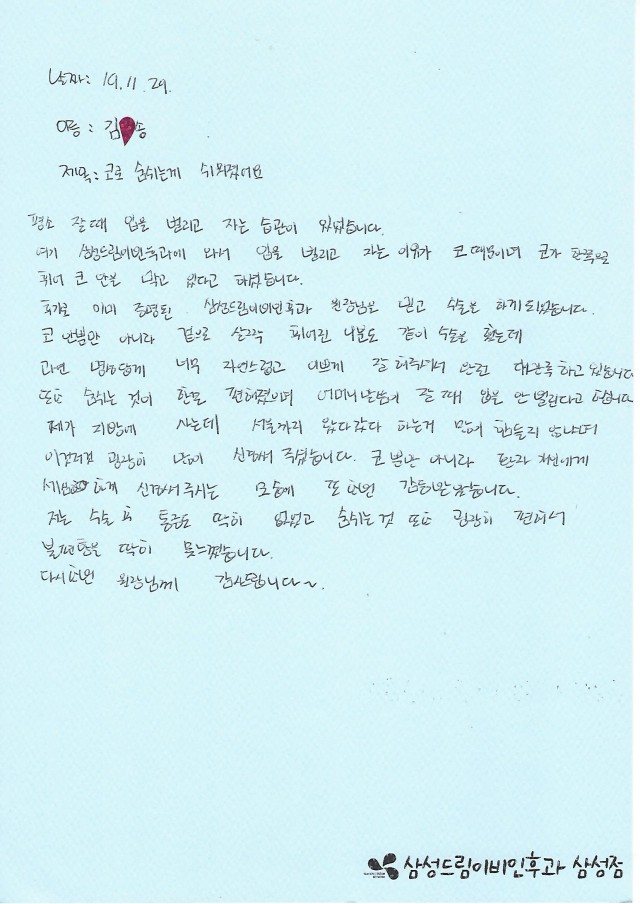 날짜: 19.11.29.
이름: 김 송
제목: 코로 숨쉬는게 쉬워졌어요
평소 잘 때 입을 벌리고 자는 습관이 있었습니다.
여기 삼성드림이비인후과에 와서 입을 벌리고 자는 이유가 코 때문이며 코가 한쪽으로
휘어 코 안을 막고 있다고 하셨습니다.
후기로 이미 증명된 삼성드림이비인후과 원장님을 믿고 수술을 하게 되었습니다.
코 안뿐만 아니라 겉으로 살그락 휘어진 부분도 같이 수술을 했는데
과연 명성답게 너무 자연스럽고 이쁘게 잘 해주셔서 완전 대만족하고 있습니다
또한 숨쉬는 것이 한결 편해졌으며 어머니 말씀이 잘 때 입을 안 벌린다고 합니다
제가 지방에 사는데 서울까지 왔다갔다 하는거 많이 힘들지 않냐며
이것저것 굉장히 많이 신경써 주셨습니다. 코 뿐만 아니라 환자 자신에게
세심하게 신경써주시는 모습에 또 한번 감동받았습니다.
저는 수술 후 통증도 딱히 없었고 숨쉬는 것 또한 굉장히 편해서
불편함을 딱히 못느꼈습니다.
다시한번 원장님께 감사드립니다~.
삼성드림이비인후과 삼성점